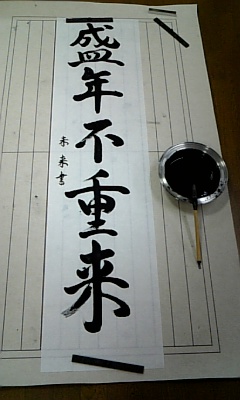 盛年不重来
未来書